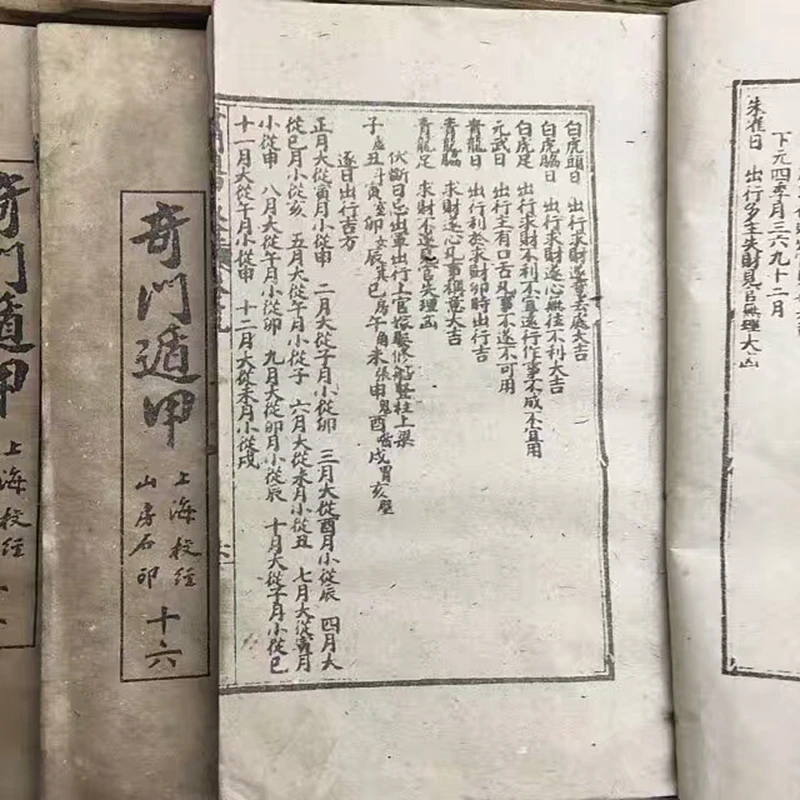 朱雀日　出行多主失財見官無理大凶
下元四季月三六九十二月
白虎頭日　出行求財遂意去處大吉
白虎脇日　出行求財遂心無往不利大吉
白虎足　出行求財不利不宜遠行作事不成不宜用
元武日　出行主有口舌凡事不遂不可用
青龍日　出行利於求財卯時出行吉
青龍脇　求財遂心凡事稱意大吉
青龍足　求財不遂見官失理凶
伏斷日忌出軍出行上官嫁娶修船豎柱上梁
子虛丑斗寅室卯女辰箕巳房午角未張申鬼酉觜戌胃亥壁
逐日出行吉方
正月大從寅月小從申　二月大從子月小從卯　三月大從酉月小從辰　四月大
從巳月小從亥　五月大從午月小從子　六月大從未月小從丑　七月大從寅月
小從申　八月大從午月小從卯　九月大從卯月小從辰　十月大從子月小從巳
十一月大從午月小從申　十二月大從未月小從戌
奇門遁甲
上海校經
山房石印
十六
奇門遁甲
上海校經